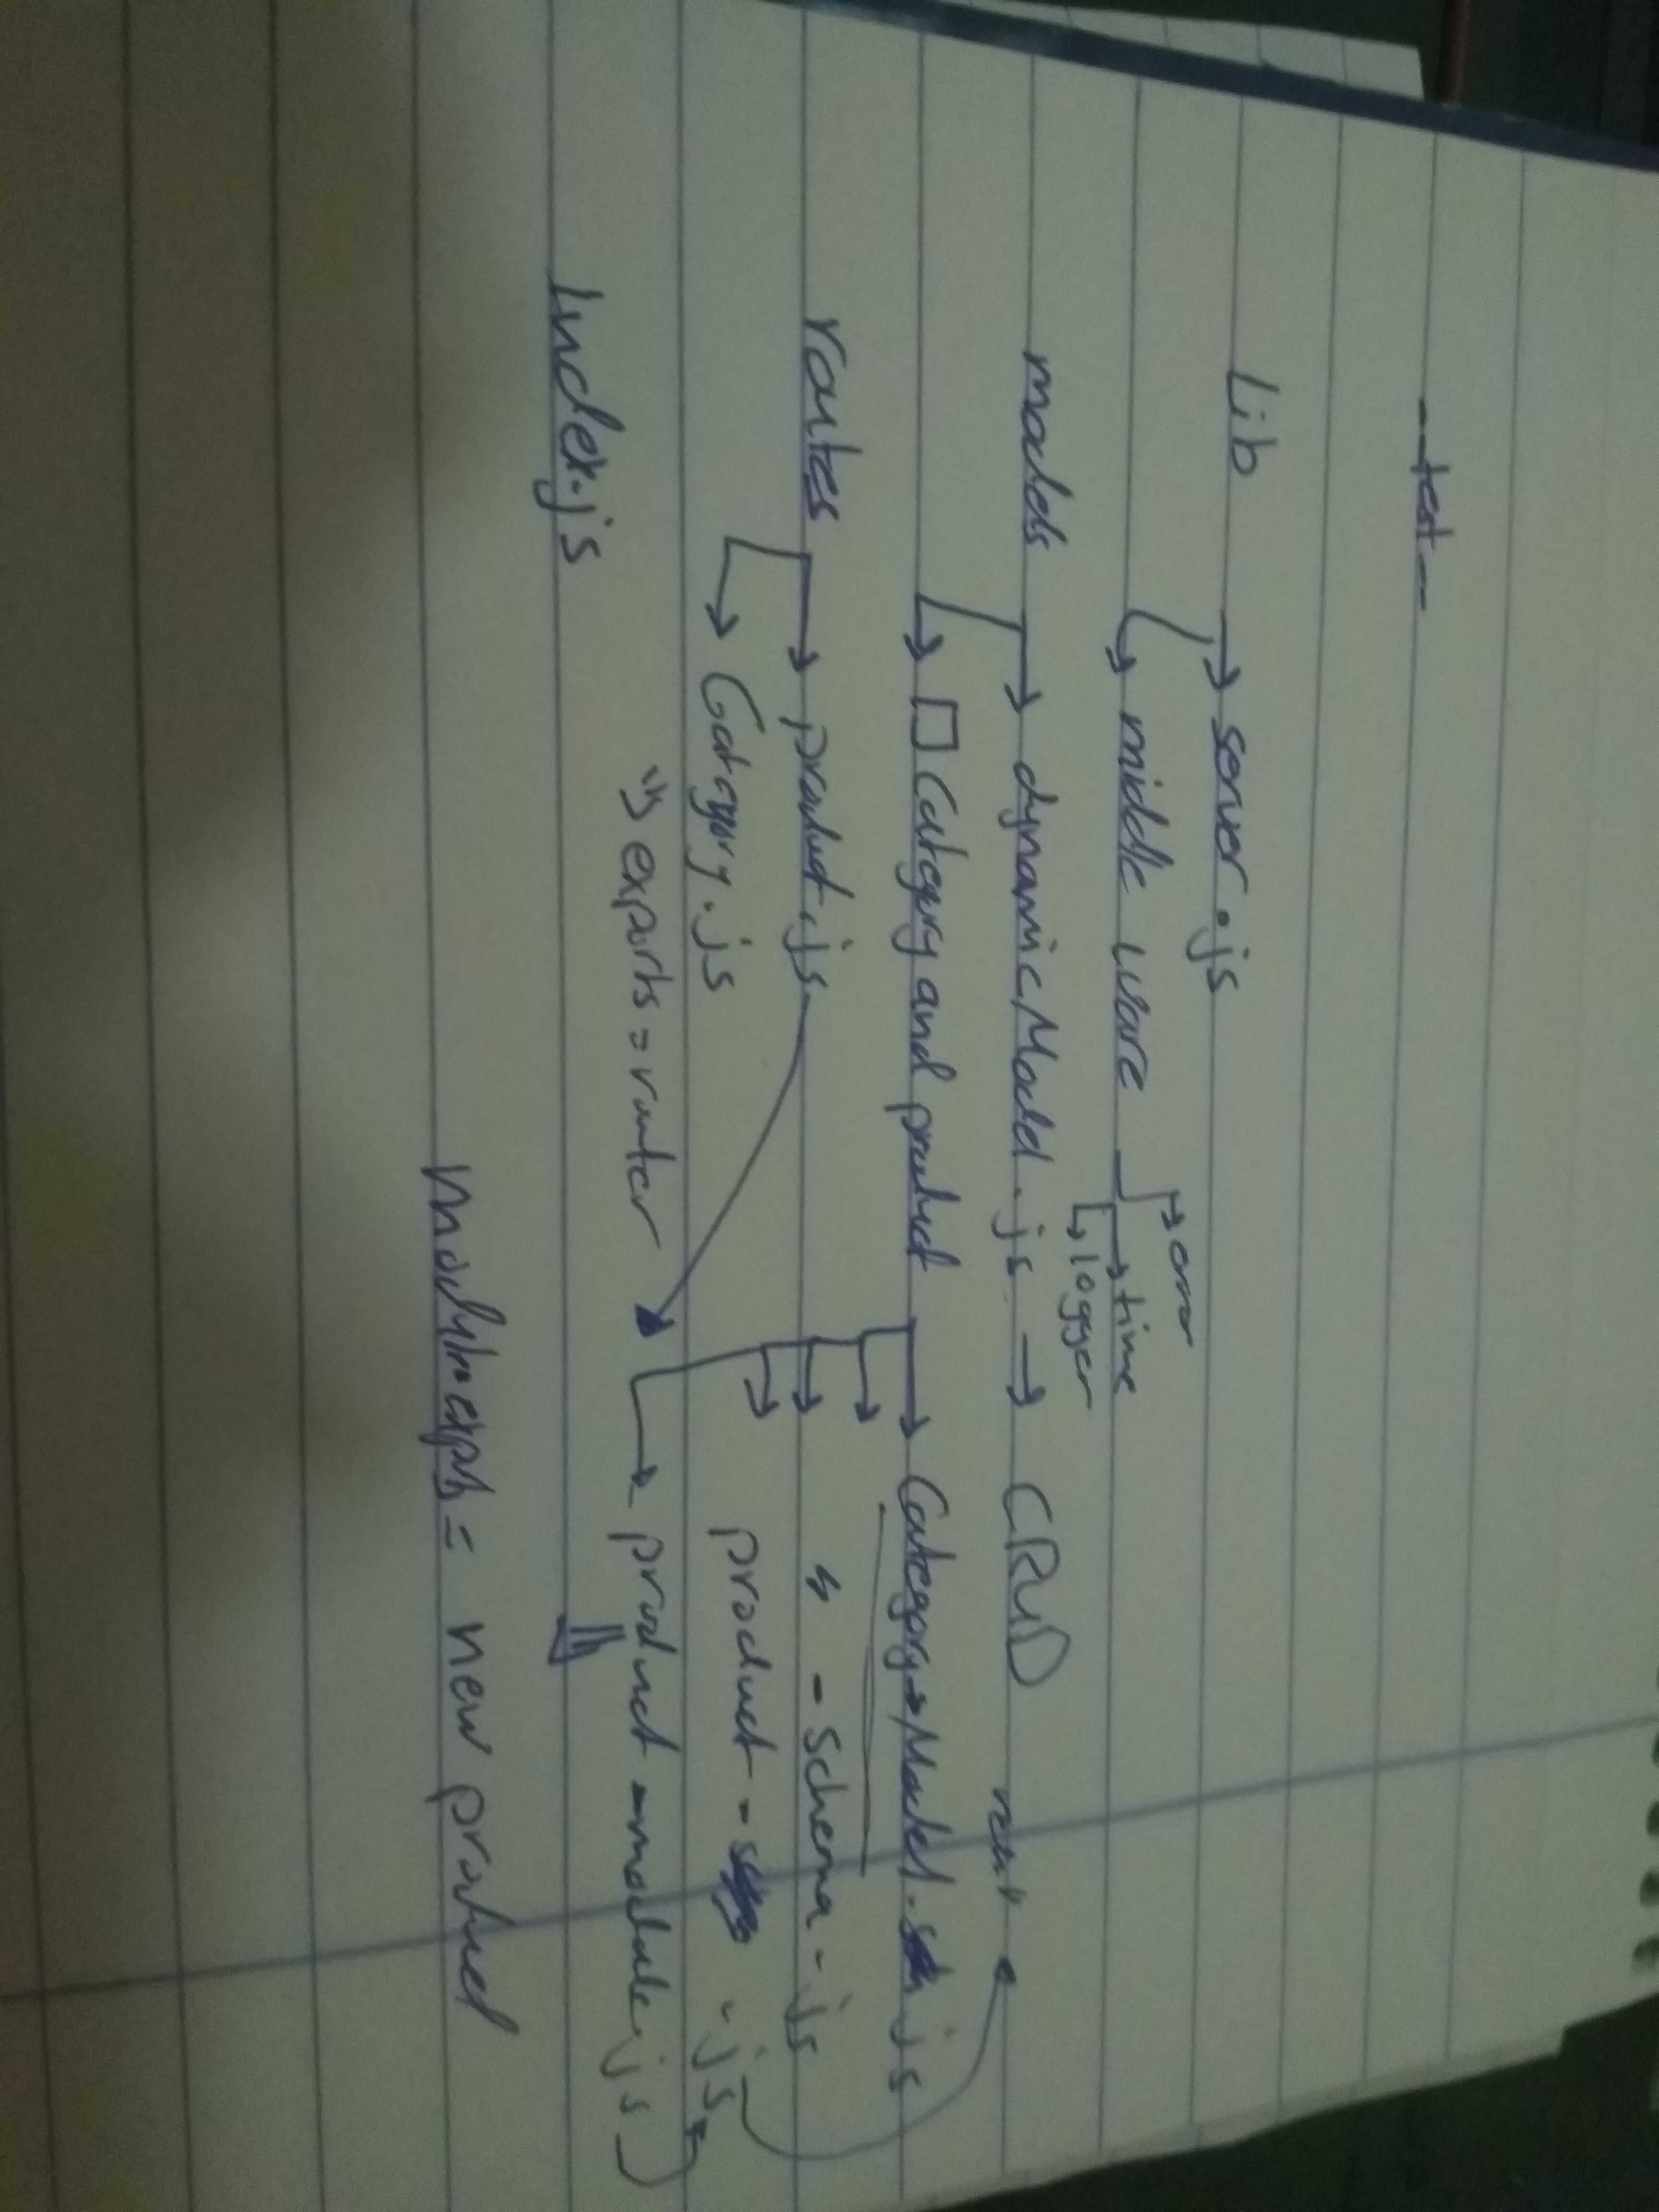 --test--
Lib → server.js
→ middle ware → error
→ time
→ logger
models → dynamicModel.js → CRUD
→ Category and product → Category-Model.js
" - Schema - js
product - .js
routes → product.js
→ Category.js
→ product - module.js
" exports = router
Index.js
= new product